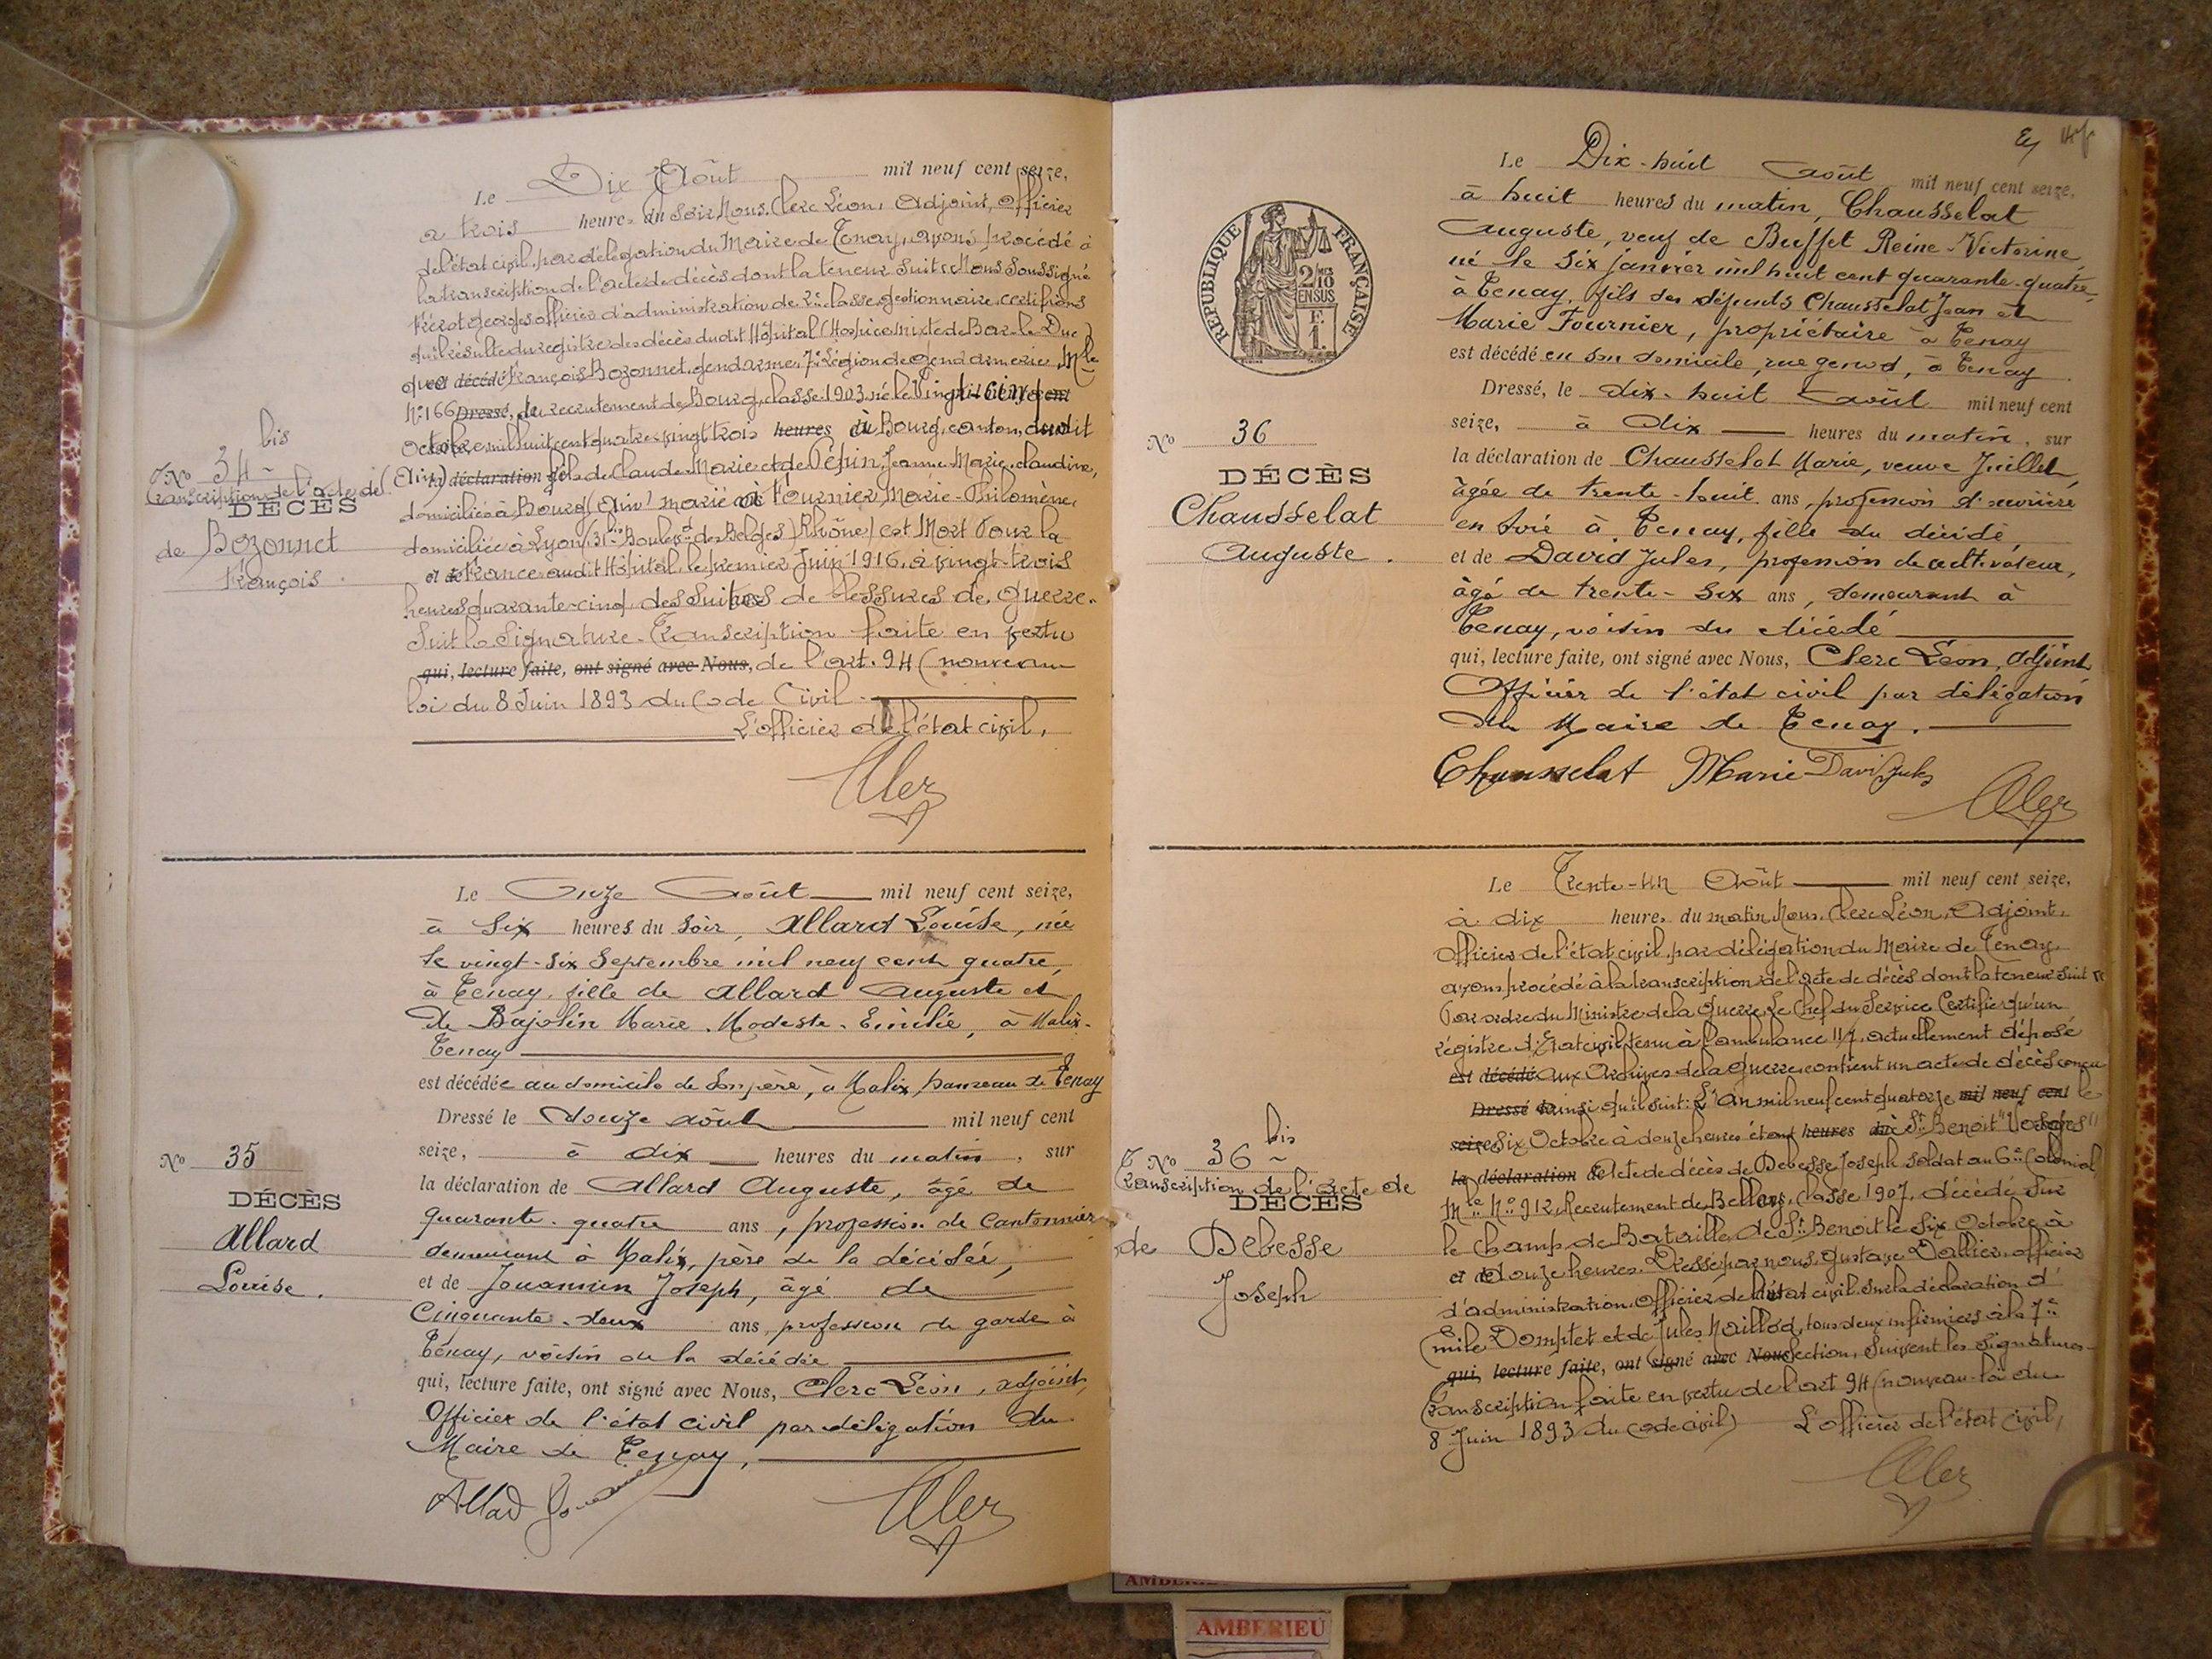 Le Dix Août mil neuf cent seize,
à trois heures du soir Nous, Clerc Léon, Adjoint, officier
de l'état civil par délégation du Maire de Tenay, avons procédé à
la transcription de l'acte de décès dont la teneur suit: Nous soussigné
georges officier d'administration de classe, gestionnaire, certifions
qu'il résulte du registre des décès du dit Hôpital (Hospice mixte de Bar-le-Duc)
que est décédé François Bozonnet, gendarme, 7e Légion de gendarmerie, Mle
No 166 Dressé, du recrutement de Bourg, classe 1903, né le vingt cinq
octobre mil huit cent quatre vingt trois heures à Bourg, canton, dudit
(Ain) la déclaration fils de Claude Marie et de Pépin, Jeanne Marie Claudine,
domiciliés à Bourg (Ain) marié à Fournier, Marie-Philomène,
domiciliée à Lyon (31 bis Boulevd des Belges) Rhône) est Mort Pour la
et de France audit Hôpital, le premier Juin 1916, à vingt-trois
heures quarante-cinq des suites de blessures de guerre.
Suit la signature. Transcription faite en vertu
qui, lecture faite, ont signé avec Nous, de l'art. 94 (nouveau
loi du 8 Juin 1893 du Code Civil
L'officier de l'état civil,
Clerc
bis
No 34
Transcription de l'acte de
DÉCÈS
de Bozonnet
François.
Le Onze Août mil neuf cent seize,
à Six heures du soir, Allard Louise, née
le vingt-six Septembre mil neuf cent quatre,
à Tenay, fille de Allard Auguste et
de Bajolin Marie Modeste Emélie, à Malix-
Tenay
est décédée au domicile de son père, à Malix, hameau de Tenay
Dressé le douze août mil neuf cent
seize, à dix heures du matin, sur
la déclaration de Allard Auguste, âgé de
quarante-quatre ans, profession de Cantonnier
demeurant à Malix, père de la décédée,
et de Jouannin Joseph, âgé de
Cinquante-deux ans, profession de garde à
Tenay, voisin de la décédée
qui, lecture faite, ont signé avec Nous, Clerc Léon, adjoint,
Officier de l'état civil par délégation du
Maire de Tenay,
Allard
Clerc
No 35
DÉCÈS
Allard
Louise.
Le Dix-huit août mil neuf cent seize,
à huit heures du matin, Chausselat
Auguste, veuf de Buffet Reine-Victorine
né le six janvier mil huit cent quarante-quatre,
à Tenay, fils des défunts Chausselat Jean et
Marie Fournier, propriétaire à Tenay
est décédé en son domicile, rue, à Tenay.
Dressé, le dix-huit août mil neuf cent
seize, à dix heures du matin, sur
la déclaration de Chausselat Marie, veuve Juillet,
âgée de trente-huit ans, profession d'ouvrière
en soie à Tenay, fille du décédé,
et de David Jules, profession de cultivateur,
âgé de trente-six ans, demeurant à
Tenay, voisin du décédé
qui, lecture faite, ont signé avec Nous, Clerc Léon, adjoint
Officier de l'état civil par délégation
du Maire de Tenay.
Chausselat Marie David Jules
Clerc
RÉPUBLIQUE FRANÇAISE
2/10 EN SUS
F.
1.
No 36
DÉCÈS
Chausselat
Auguste.
Le Trente-un Août mil neuf cent seize,
à dix heures du matin Nous, Clerc Léon, Adjoint,
officier de l'état civil, par délégation du Maire de Tenay,
avons procédé à la transcription de l'acte de décès dont la teneur suit "
Par ordre du Ministre de la Guerre, Le Chef du Service Certifie qu'un
régistre d'Etat civil tenu à l'ambulance 11/7, actuellement déposé
est décédé aux Archives de la Guerre contient un acte de décès conçu
Dressé ainsi qu'il suit: L'an mil neuf cent quatorze mil neuf cent le
seize six Octobre à douze heures étant heures du à St Benoit "Vosges"
la déclaration de Acte de décès de Debesse Joseph soldat au 6e Colonial
Mle No 912, Recrutement de Belley, classe 1907, décédé sur
le champ de Bataille de St Benoit le six Octobre à
et de onze heures. Dressé par nous, Gustave Dallier, officier
d'administration, Officier de l'état civil sur la déclaration d'
Emile Domptet et de Jules Maillod, tous deux infirmiers à la 7e
qui, lecture faite, ont signé avec Nous Section, Suivent les Signatures
Transcription faite en vertu de l'art 94 (nouveau-loi du
8 Juin 1893 du Code civil) L'officier de l'état civil,
Clerc
bis
No 36
Transcription de l'acte de
DÉCÈS
de Debesse
Joseph
AMBERIEU